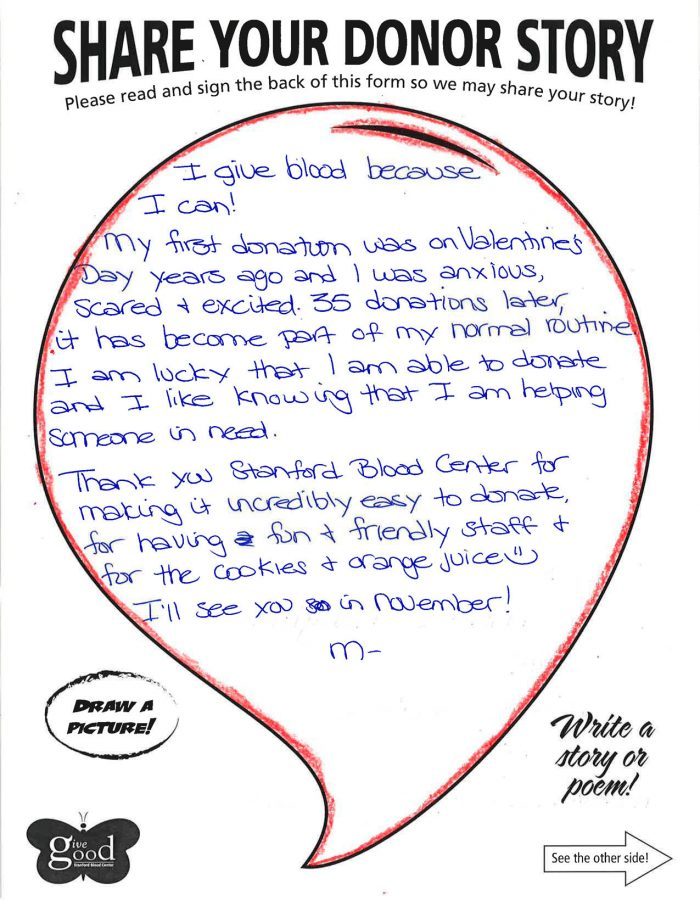 SHARE YOUR DONOR STORY
Please read and sign the back of this form so we may share your story!
I give blood because
I can!
My first donation was on Valentine's
Day years ago and I was anxious,
scared + excited. 35 donations later,
it has become part of my normal routine.
I am lucky that I am able to donate
and I like knowing that I am helping
someone in need.
Thank you Stanford Blood Center for
making it incredibly easy to donate,
for having fun + friendly staff +
for the cookies + orange juice
I'll see you in November!
M-
DRAW A
PICTURE!
Write a
story or
poem!
give
good
Stanford Blood Center
See the other side!